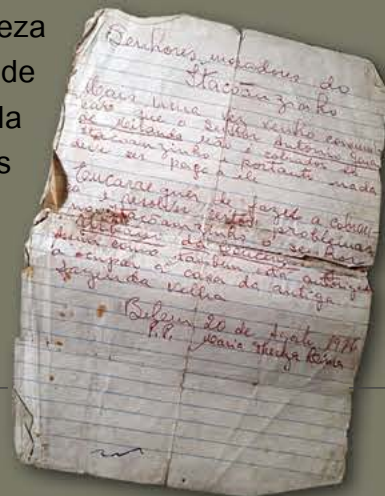 eza
de
da
s
Senhores moradores do
Itacoãnzinho
Mais uma vez venho comuni
car que o senhor Antonio
de não é cobrador do
Itacoanzinho e portanto nada
deve ser pago a ele
Encarreguei de fazer a cobran
ça e resolver certos problemas
no Itacoãnzinho o senhor
da
assim como também está autorizado
a ocupar a casa da antiga
fazenda velha
Belem 20 de 1986
P.P. Maria